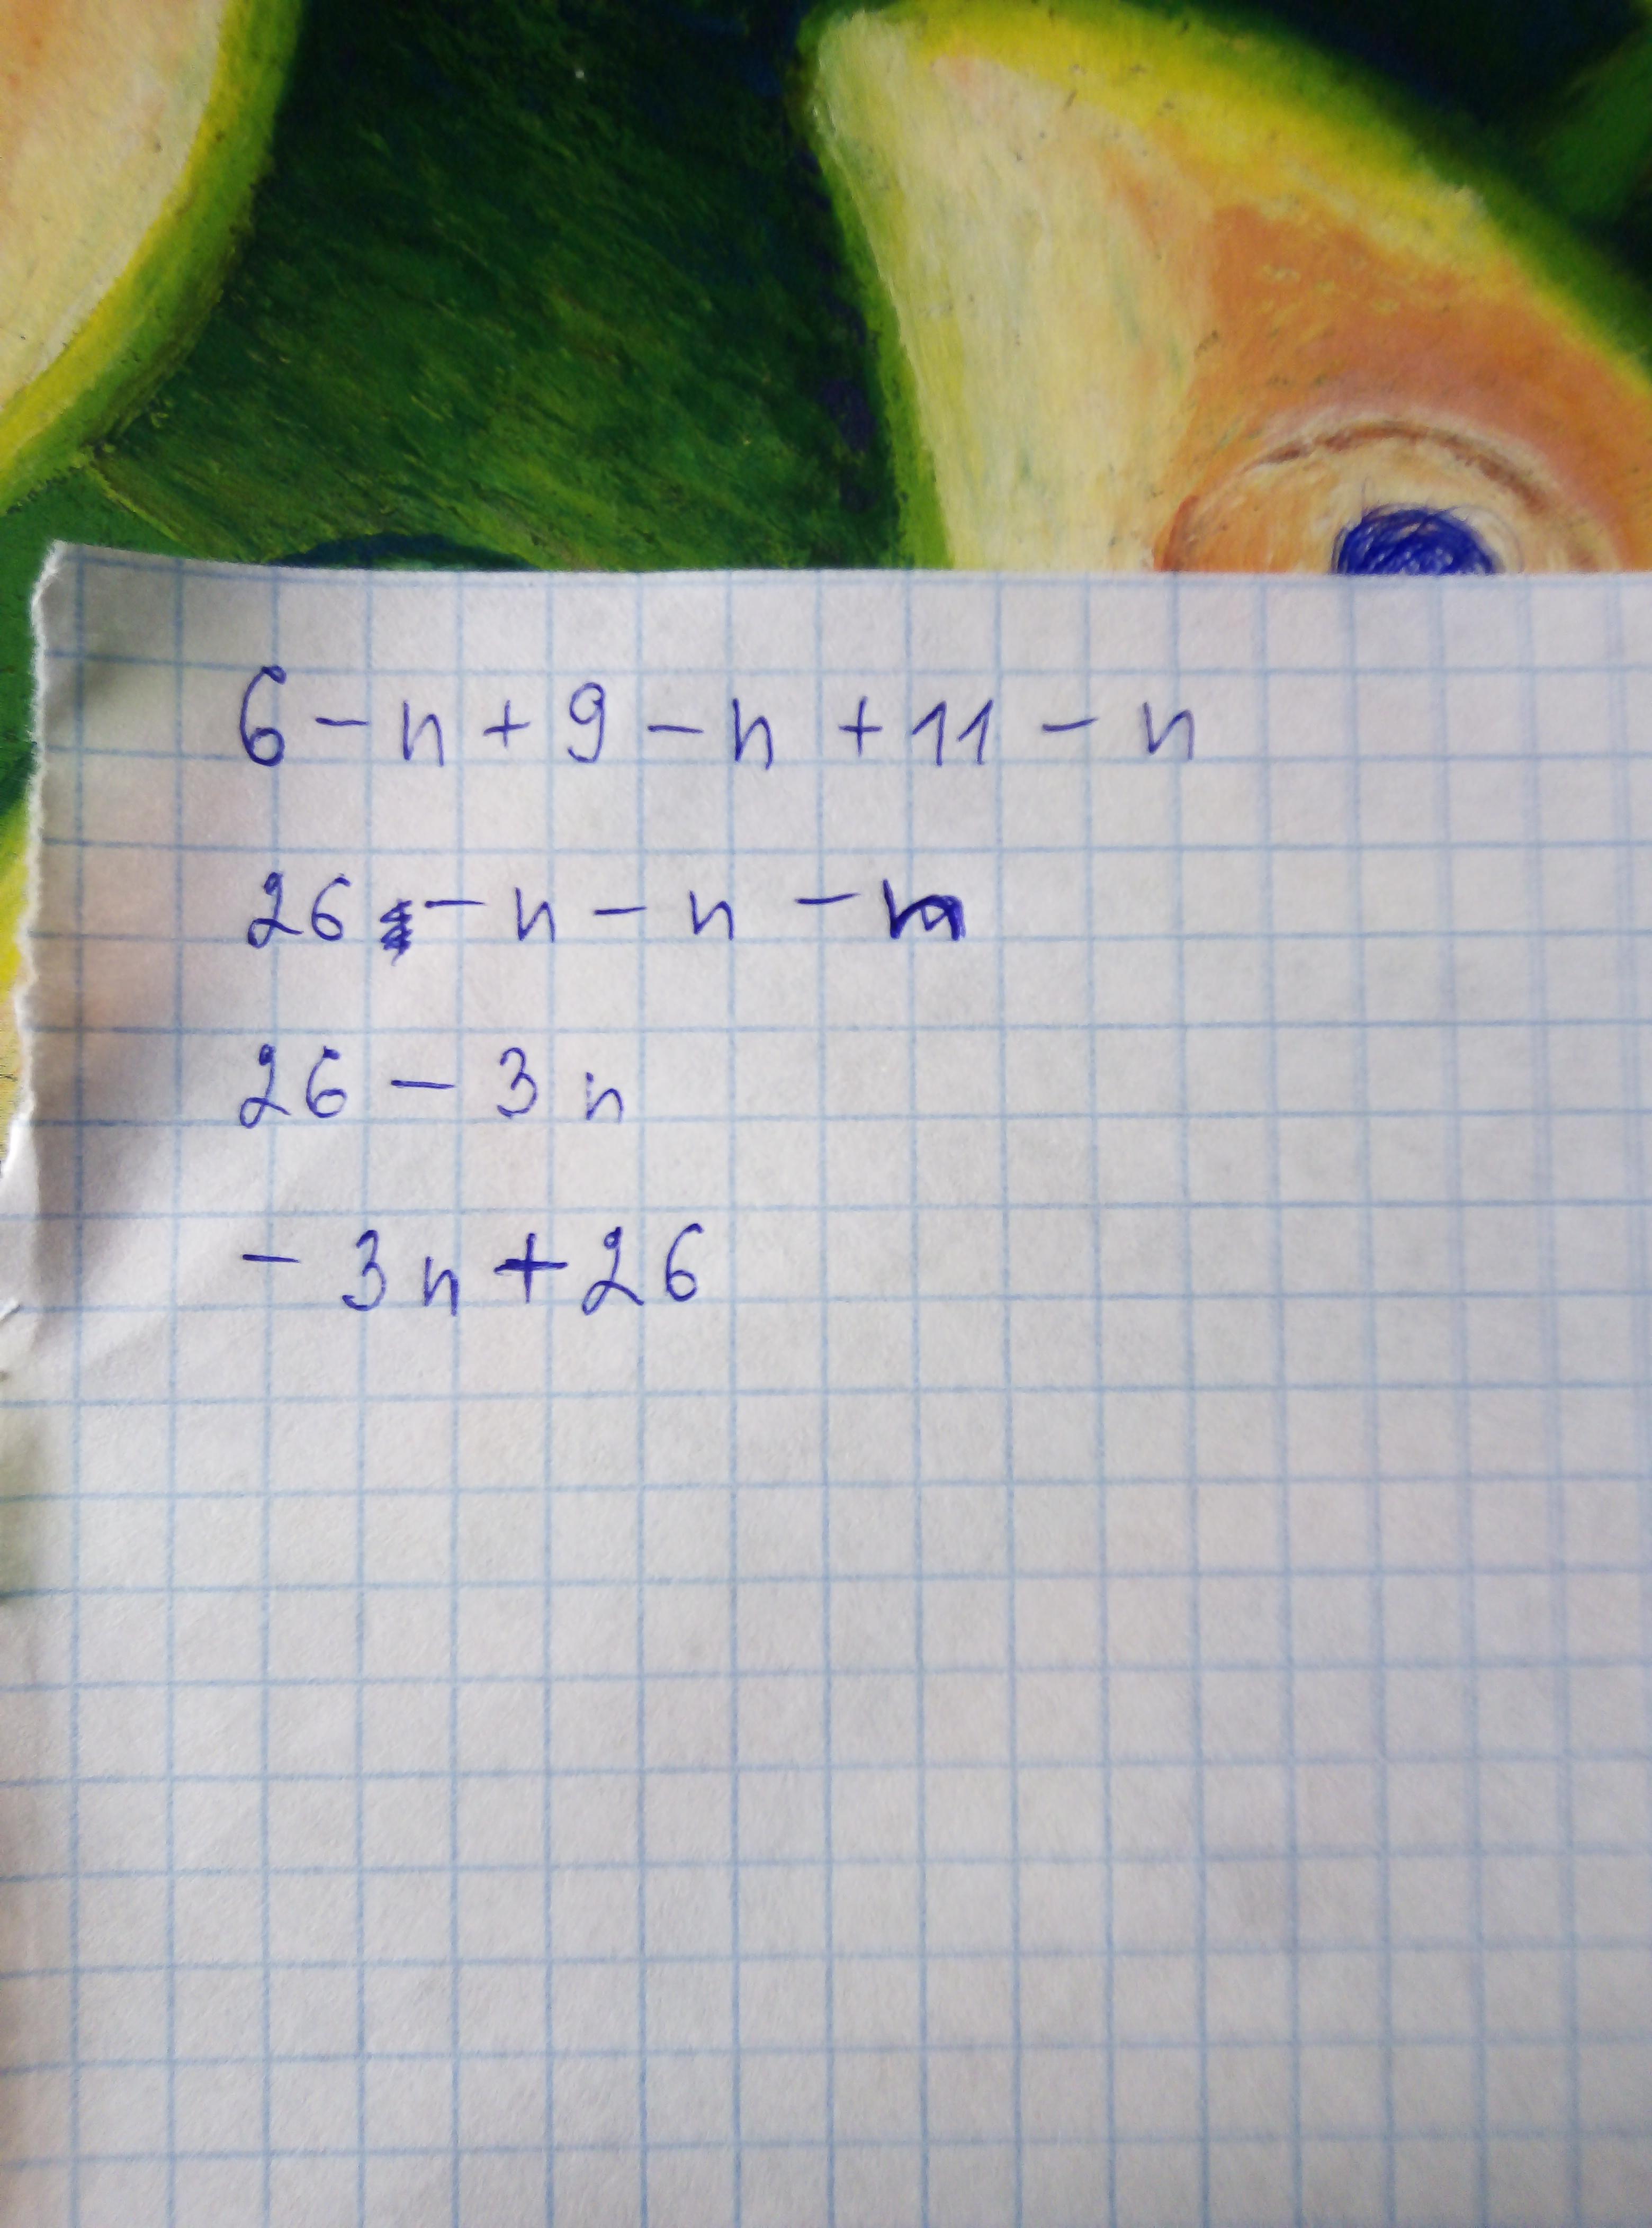 6 - n + 9 - n + 11 - n
26 - n - n - n
26 - 3n
- 3n + 26